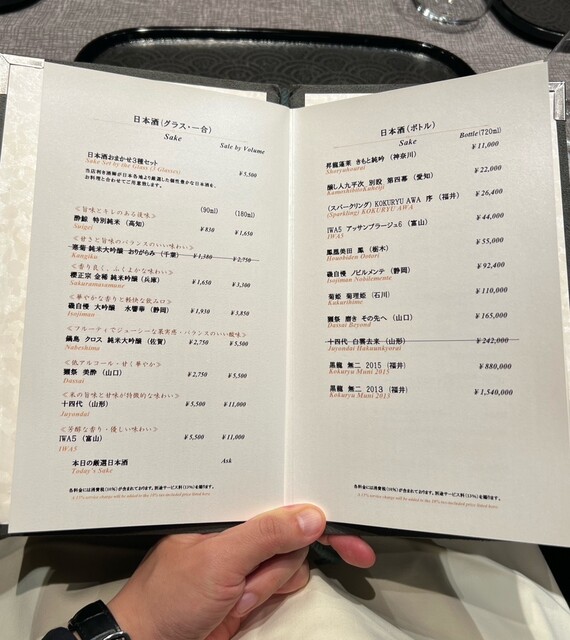 日本酒(グラス・一合)
Sake
Sale by Volume
日本酒おまかせ3種セット ¥5,500
Sake Set by the Glass (3 Glasses)
当店利き酒師が日本各地より厳選した個性豊かな日本酒を、
お料理と合わせてご用意致します。
(90ml) (180ml)
<旨味とキレのある後味>
酔鯨 特別純米 (高知) ¥830 ¥1,650
Suigei
<甘さと旨味のバランスのいい味わい>
寒菊 純米大吟醸 おりがらみ (千葉) ¥1,380 ¥2,750
Kangiku
<香り良く、ふくよかな味わい>
櫻正宗 金稀 純米大吟醸 (兵庫) ¥1,650 ¥3,300
Sakuramasamune
<華やかな香りと軽快な飲み口>
磯自慢 大吟醸 水響華 (静岡) ¥1,930 ¥3,850
Isojiman
<フルーティでジューシーな果実感・バランスのいい酸味>
鍋島 クロス 純米大吟醸 (佐賀) ¥2,750 ¥5,500
Nabeshima
<低アルコール・甘く華やか>
獺祭 美酔 (山口) ¥2,750 ¥5,500
Dassai
<米の旨味と甘味が特徴的な味わい>
十四代 (山形) ¥5,500 ¥11,000
Juyondai
<芳醇な香り・優しい味わい>
IWA5 (富山) ¥5,500 ¥11,000
IWA5
本日の厳選日本酒 Ask
Today's Sake
各料金には消費税(10%)が含まれております。別途サービス料(15%)を賜ります。
A 15% service charge will be added to the 10% tax-included price listed here.
日本酒(ボトル)
Sake
Bottle(720ml)
昇龍蓬莱 きもと純吟 (神奈川) ¥11,000
Shoryuhourai
醸し人九平次 別誂 第四幕 (愛知) ¥22,000
KamoshibitoKuheiji
(スパークリング) KOKURYU AWA 序 (福井) ¥26,400
(Sparkling) KOKURYU AWA
IWA5 アッサンブラージュ6 (富山) ¥44,000
IWA5
鳳凰美田 鳳 (栃木) ¥55,000
Hououbiden Ootori
磯自慢 ノビルメンテ (静岡) ¥92,400
Isojiman Nobilemente
菊姫 菊理媛 (石川) ¥110,000
Kukurihime
獺祭 磨き その先へ (山口) ¥165,000
Dassai Beyond
十四代 白雲去来 (山形) ¥242,000
Juyondai Hakuunkyorai
黒龍 無二 2015 (福井) ¥880,000
Kokuryu Muni 2015
黒龍 無二 2013 (福井) ¥1,540,000
Kokuryu Muni 2013
各料金には消費税(10%)が含まれております。別途サービス料(15%)を賜ります。
A 15% service charge will be added to the 10% tax-included price listed here.